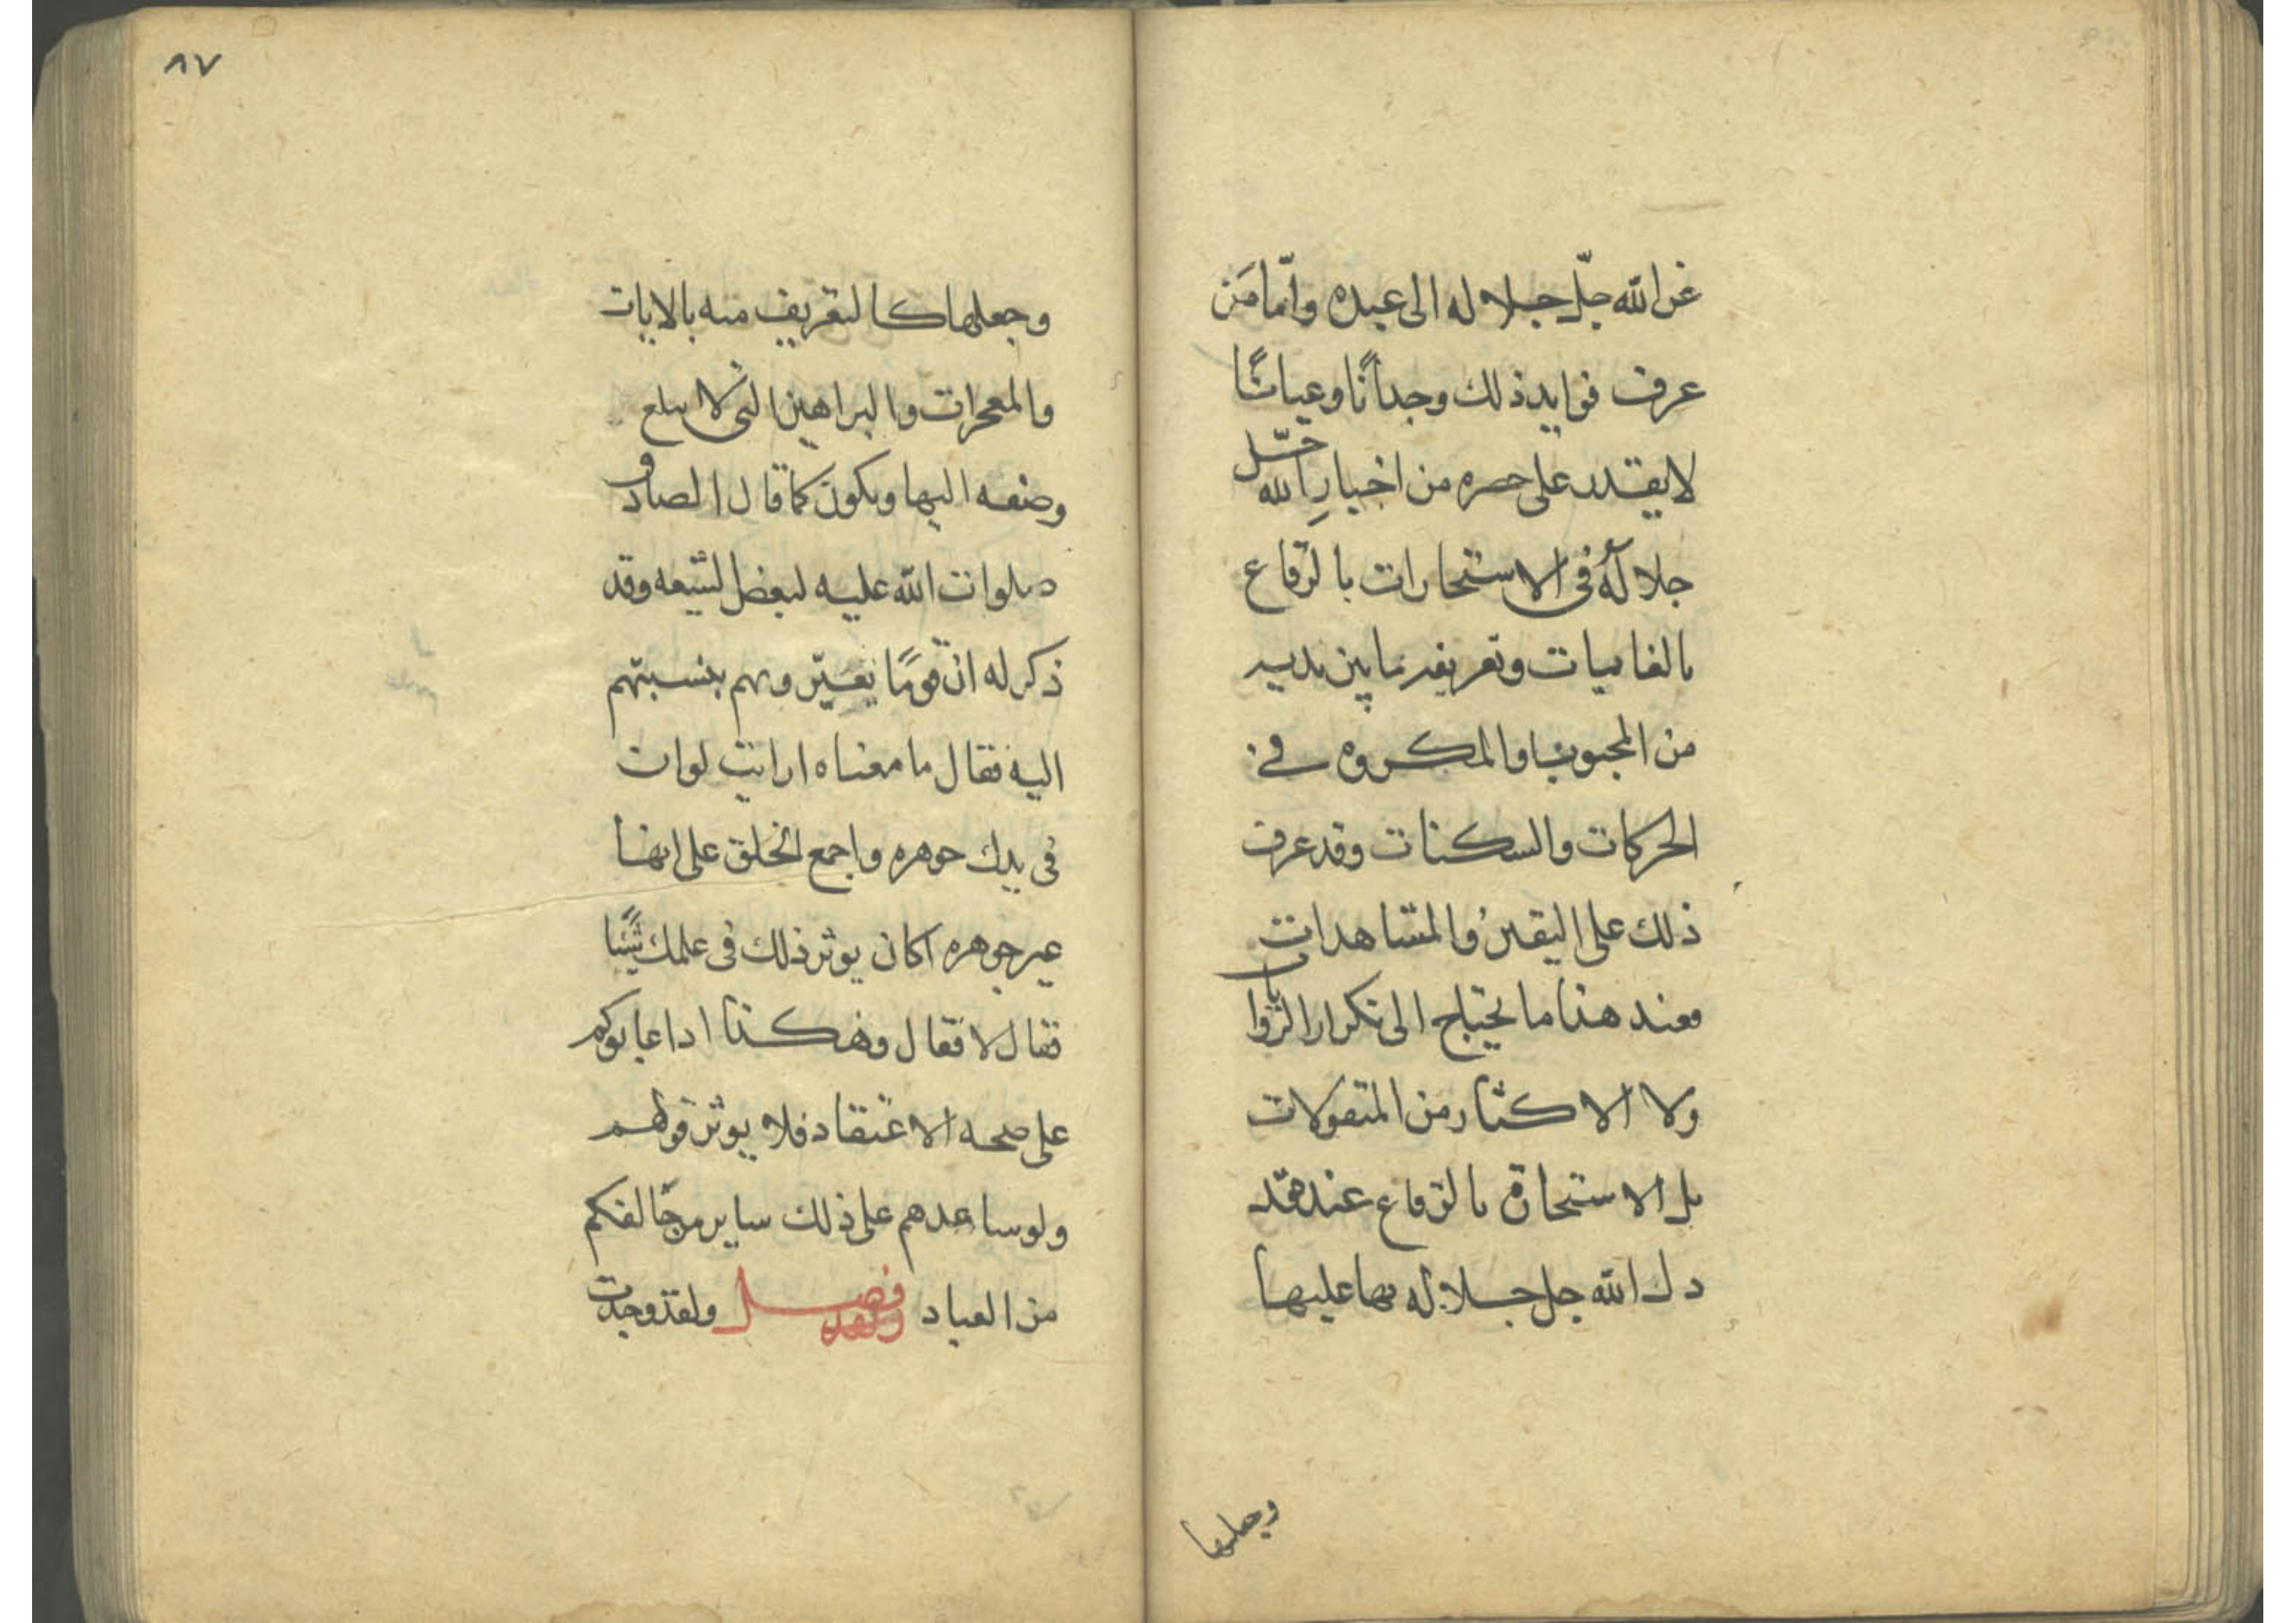 عن الله جلّ جلاله الى عبده وامّا مَن
عرف فوايد ذلك وجدانًا وعيانًا
لا يقدر على حصره من اخبارِ الله جلّ
جلاله فى الاستخارات بالرقاع
بالغايبات وتعريفه ما بين يديه
من المحبوب والمكروه في
الحركات والسكنات وقد عرف
ذلك على اليقين والمشاهدات
فعند هذا ما يحتاج الى تكرار الروايات
ولا الاكثار من المنقولات
بل الاستخارة بالرقاع عنده قد
دل الله جل جلاله بها عليها
وجعلها
٨٧
وجعلها كالتعريف منه بالايات
والمعجزات والبراهين التى لا يبلغ
وصفه اليها ويكون كما قال الصادق
صلوات الله عليه لبعض لشيعه وقد
ذكر له انّ قومًا يعيّرونهم بنسبتهم
اليه فقال ما معناه ارايت لوان
فى يدك جوهره واجمع الخلق على انها
غير جوهره اكان يوثر ذلك فى علمك شيًا
فقال لا فقال وهكذا اذا عابوكم
على صحه الاعتقاد فلا يوثر قولهم
ولو ساعدهم على ذلك ساير من خالفكم
من العباد فصل ولقد وجدت